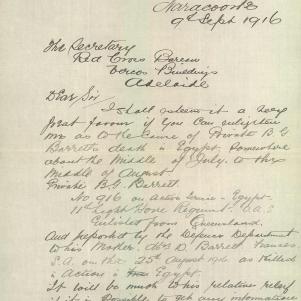 Naracoorte
9th Sept 1916
The Secretary
Red Cross Bureau
Vercos Buildings
Adelaide
Dear Sir
I shall esteem it a very
great favour if you can enlighten
me as to the Cause of Private B G
Barrett's death in Egypt. Somewhere
about the Middle of July to the
Middle of August
Private B. G. Barrett.
No 916 on active Service - Egypt -
11th Light Horse Regiment
Enlisted from Queensland.
And reported by the Defence Department
to his Mother. Mrs D. Barrett Frances
S.A. on the 25th August 1916 as Killed
in Action in Egypt.
It will be much to his relative relief
if it is Possible to get any information